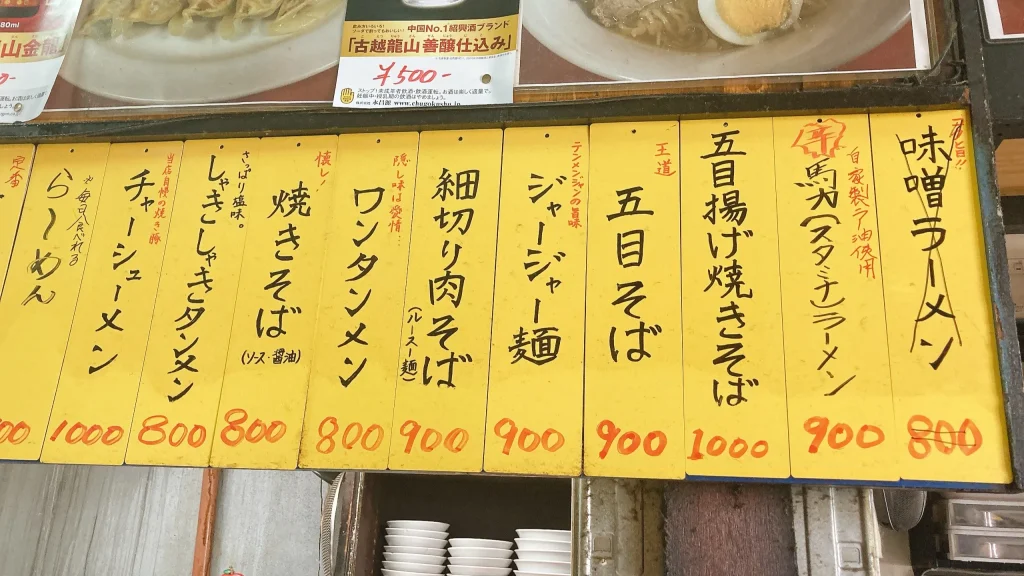 80ml
山金龍
中国No.1紹興酒ブランド
「古越龍山 善醸仕込み」
¥500-
永昌源 www.chugokushu.jp
味噌ラーメン
800
辛
自家製ラー油使用
馬力(スタミナ)ラーメン
900
五目揚げ焼きそば
1000
王道
五目そば
900
テンメンジャンの旨味
ジャージャー麺
900
細切り肉そば
(ルースー麺)
900
隠し味は愛情…
ワンタンメン
800
懐し!
焼きそば
(ソース・醤油)
800
さっぱり塩味。
しゃきしゃきタンメン
800
当店自慢の焼き豚
チャーシューメン
1000
※毎日食べれる
らーめん
定番
00